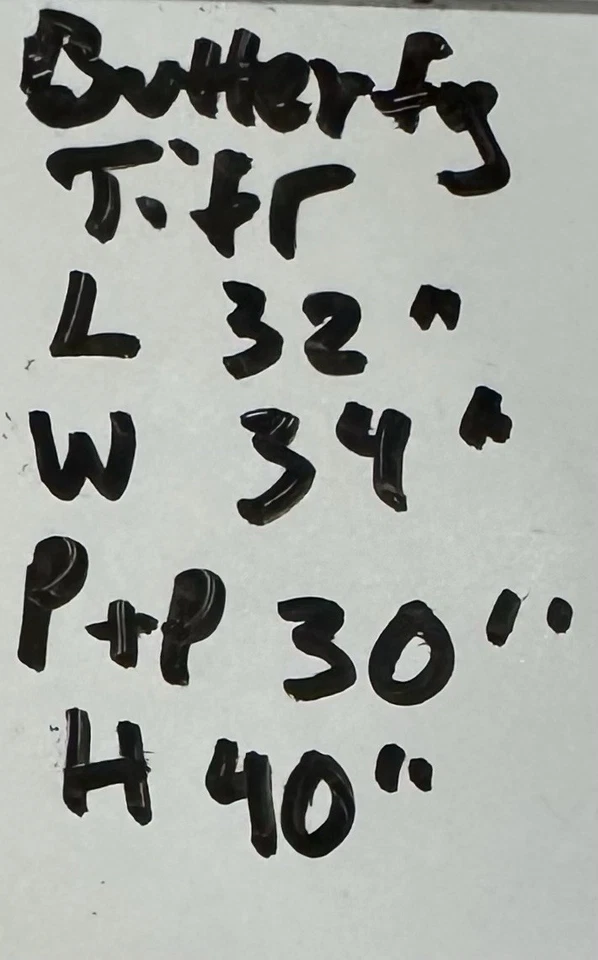 Butterfy
L 32"
W 34"
P+P 30"
H 40"